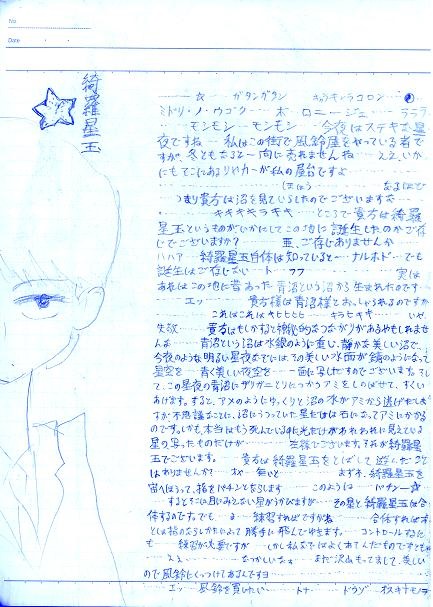 No.
Date
綺羅星玉
衣 ガタンガタン キャラキャラコロン
ミドリ・ノ・ウゴク ボ ロニージュ ラララ
モンモン モンモン 今夜はステキな星
夜ですね 私はこの街で風鈴屋をやっている者で
すが、冬ともなると一向に売れませんね ええ、いか
にもそこにあるリヤカーが私の屋台ですよ
ほほう なるほど
つまり貴方は沼を見ていらしたのでございますな
キキキキラキキ ところで貴方は綺羅
星玉というものがいかにしてこの地に誕生したのかご存
じでございますか? 亜、ご存じありませんか
ハハア 綺羅星玉自体は知っていると ナルホド でも
誕生はご存じない ト フフ 実は
あれはこの地に昔あった青沼という沼から生まれたのです
エッ 貴方様は青沼様とおっしゃられるのですか
これはこれはキヒヒヒヒ キラキキ いや、
失敬 貴方はもしかすると神秘的なつながりがあるやもしれませ
んな 青沼という沼は水銀のように重い、静かな美しい沼で、
今夜のような明るい星夜などには、その美しい水面が鏡のようになって
星空を 青く美しい夜空を 一面に写したものでございます。そし
て、この星夜の青沼にザリガニとりにつかうアミをしのばせて、すくい
あげます。すると、アメのようにゆっくりと沼の水がアミから逃げてしま
すが不思議なことに、沼にうつっていた星たちは石になってアミにかかる
のです。しかも、本当はもう死んでいる
星の写ったものだけが 左様でございます。それが綺羅星
玉でございます。 貴方は綺羅星玉をとばして遊んだコウ
はありませんか? オヤ 無いと まずネ、綺羅星玉を
宙へほうって、指をパチンとならします このように パチン
するとそこに目にみえない星がうかびますが その星と綺羅星玉は合
体するのです。でも、ま 練習すればですがね 合体すればす
とは指のならしかたによって勝手に飛んでゆきます。 コントロールするに
も 練習が必要ですが しかし私などはよくあてんだものですともや
ええ なつかしいなァ まだ沢山もってまして、美しい
ので風鈴にくっつけてあるんですヨ
エッ 風鈴を買いたい トナ ドウゾ オスキナモノヲ